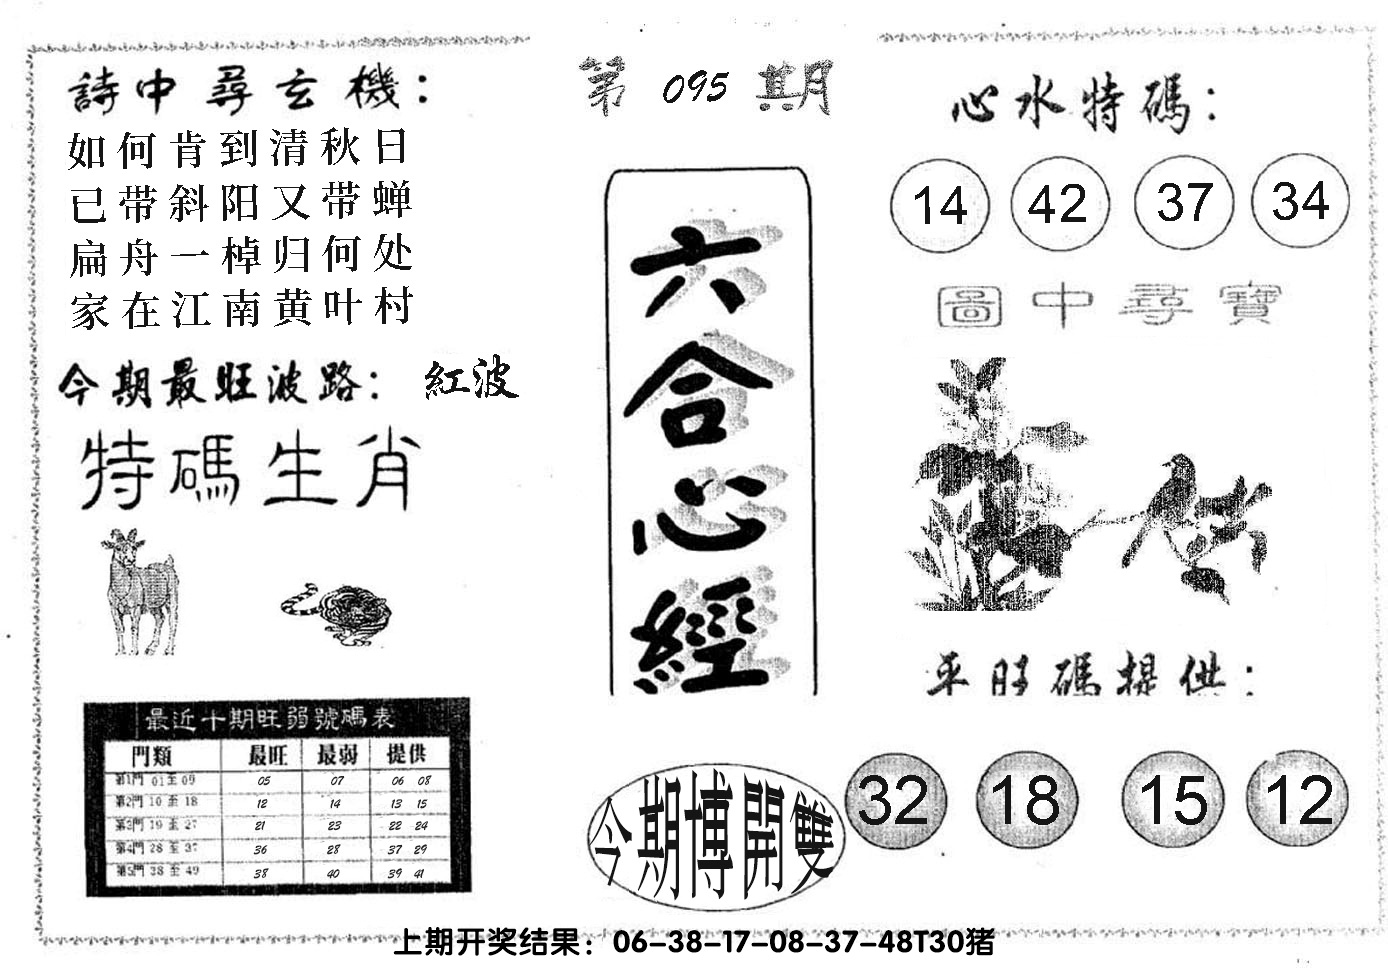 詩中尋玄機：
如何肯到清秋日
已带斜阳又带蝉
扁舟一棹归何处
家在江南黄叶村
今期最旺波路： 紅波
特碼生肖
最近十期旺弱號碼表
門類 最旺 最弱 提供
第1門 01至09 05 07 06 08
第2門 10至18 12 14 13 15
第3門 19至27 21 23 22 24
第4門 28至37 36 28 37 29
第5門 38至49 38 40 39 41
第 095 期
六合心經
今期博開雙
心水特碼：
14 42 37 34
圖中尋寶
平旺碼提供：
32 18 15 12
上期开奖结果：06-38-17-08-37-48T30猪